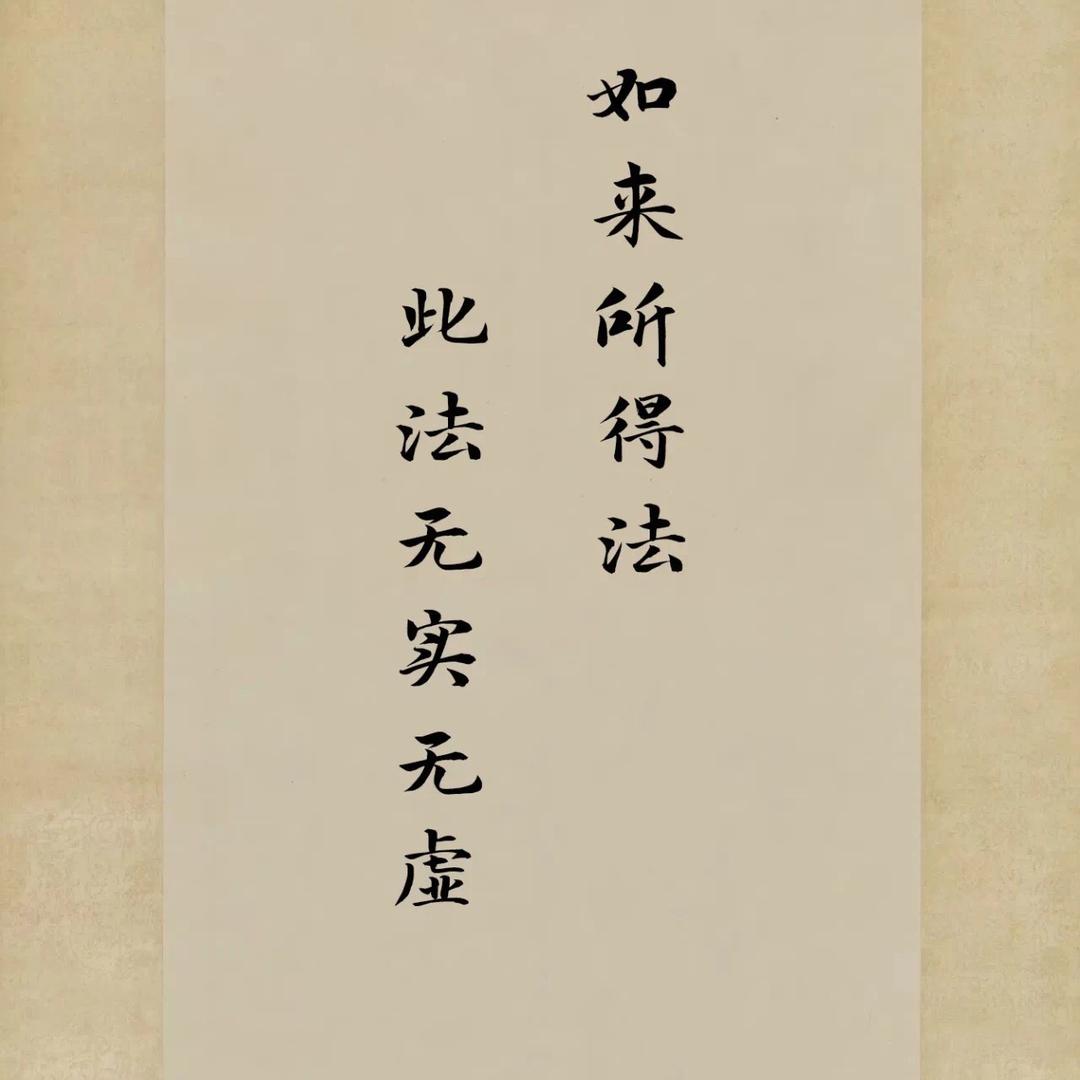 如来所得法
此法无实无虚